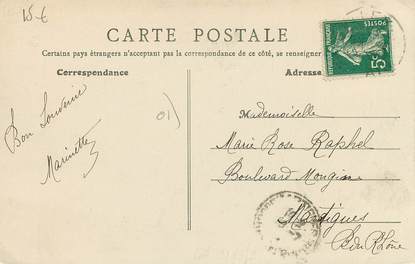 15 €
CARTE POSTALE
Certains pays étrangers n'acceptant pas la correspondance de ce côté, se renseigner
Correspondance
Adresse
POSTES
REPUBLIQUE FRANÇAISE
5c
01)
Bon Souvenir
Marinette
Mademoiselle
Marie Rose Raphel
Boulevard Mongin
Martigues
B. du Rhône